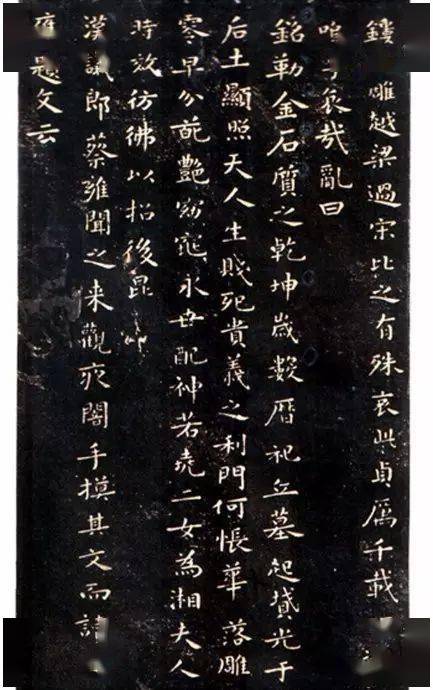 鏤雕越梁過宋比之有殊哀此貞厲千載
嗚呼哀哉亂曰
銘勒金石質之乾坤歲數曆祀丘墓起墳光于
后土顯照天人生賤死貴義之利門何悵華落雕
零早分葩艷窈窕永世配神若堯二女為湘夫人
時效彷彿以招後昆
漢議郎蔡雍聞之来觀夜闇手摸其文而讀
雍題文云